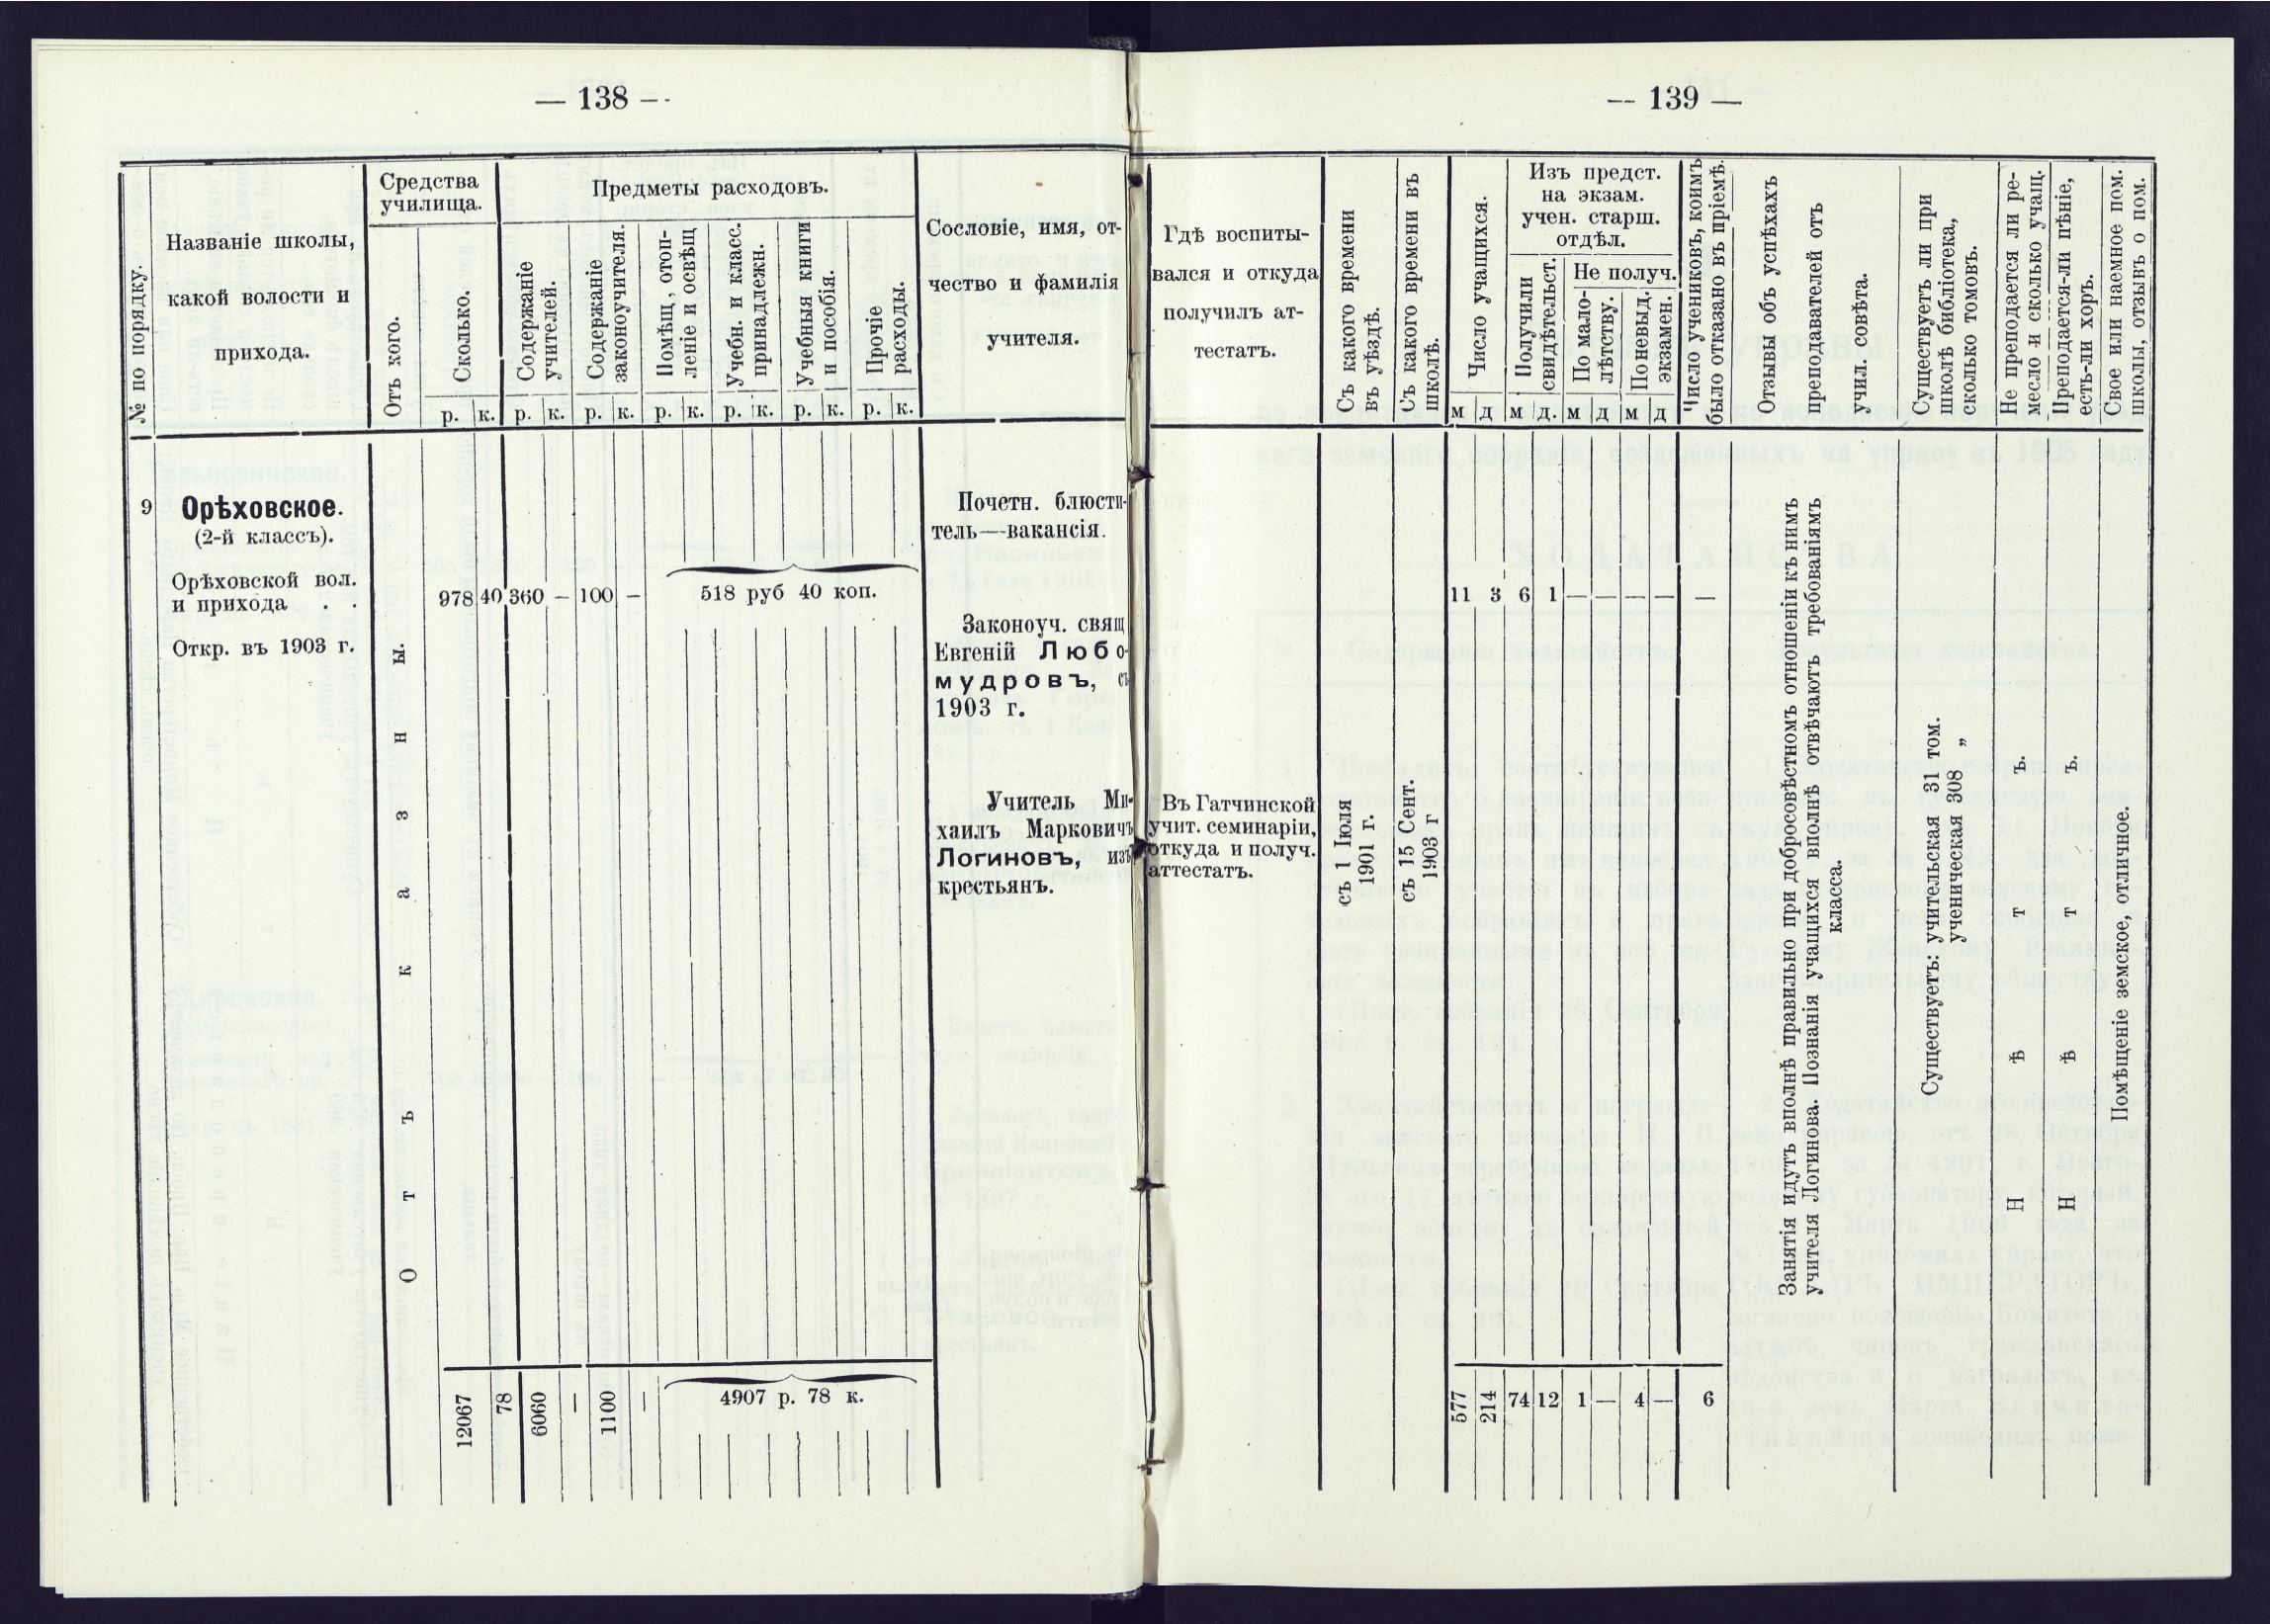 — 138 —
№ по порядку.
Названіе школы,
какой волости и
прихода.
Средства
училища.
Отъ кого.
Сколько.
Предметы расходовъ.
Содержаніе
учителей.
Содержаніе
законоучителя.
Помѣщ., отоп-
леніе и освѣщ
Учебн. и класс.
принадлежн.
Учебныя книги
и пособія.
Прочіе
расходы.
р. к. р. к. р. к. р. к. р. к. р. к. р. к.
Сословіе, имя, от-
чество и фамилія
учителя.
9
Орѣховское.
(2-й классъ).
Орѣховской вол.
и прихода . .
Откр. въ 1903 г.
Отъ казны.
978 40 360 — 100 — 518 руб 40 коп.
Почетн. блюсти-
тель—вакансія.
Законоуч. свящ
Евгеній Любо-
мудровъ, съ
1903 г.
Учитель Ми-
хаилъ Марковичъ
Логиновъ, изъ
крестьянъ.
12067 78 6060 — 1100 — 4907 р. 78 к.
— 139 —
Гдѣ воспиты-
вался и откуда
получилъ ат-
тестатъ.
Съ какого времени
въ уѣздѣ.
Съ какого времени въ
школѣ.
Число учащихся.
Изъ предст.
на экзам.
учен. старш.
отдѣл.
Получили
свидѣтельст.
Не получ.
По мало-
лѣтству.
По невыд.
экзамен.
м д м д. м д м д
Число учениковъ, коимъ
было отказано въ пріемѣ.
Отзывы объ успѣхахъ
преподавателей отъ
учил. совѣта.
Существуетъ ли при
школѣ библіотека,
сколько томовъ.
Не преподается ли ре-
месло и сколько учащ.
Преподается-ли пѣніе,
есть-ли хоръ.
Свое или наемное пом.
школы, отзывъ о пом.
Въ Гатчинской
учит. семинаріи,
откуда и получ.
аттестатъ.
съ 1 Іюля
1901 г.
съ 15 Сент.
1903 г
11 3 6 1 — — — — —
Занятія идутъ вполнѣ правильно при добросовѣстномъ отношеніи къ нимъ
учителя Логинова. Познанія учащихся вполнѣ отвѣчаютъ требованіямъ
класса.
Существуетъ: учительская 31 том.
ученическая 308 „
Нѣтъ.
Нѣтъ.
Помѣщеніе земское, отличное.
577 214 74 12 1 — 4 — 6